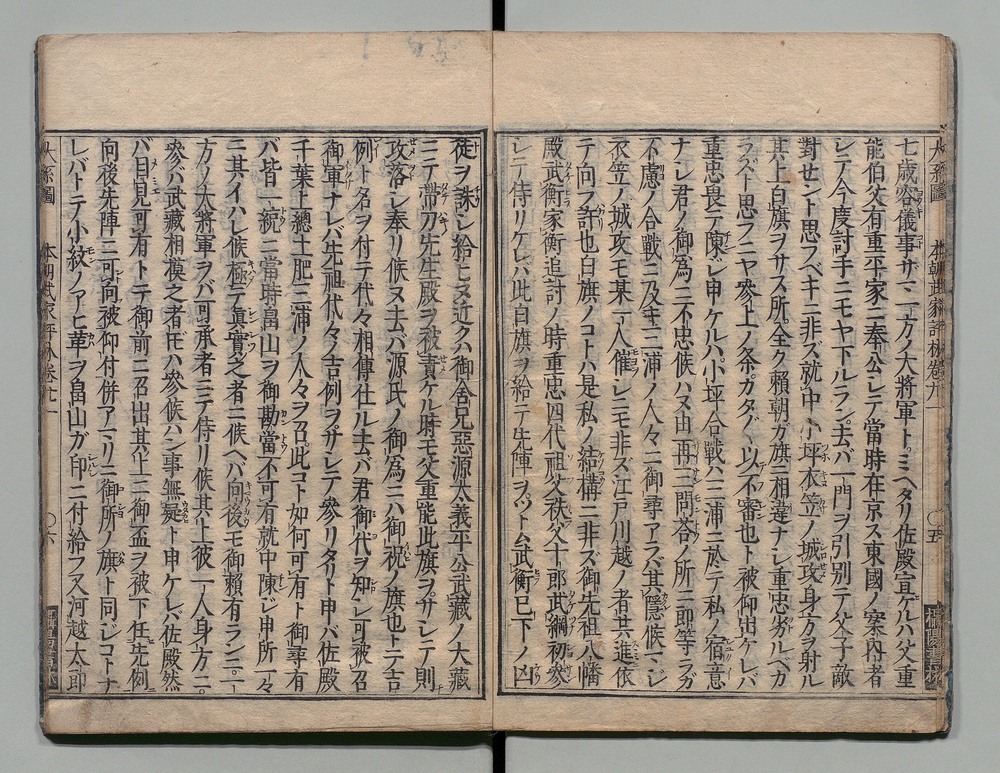 七歳容儀事ザマ一方ノ大將軍トミヘタリ佐殿宣ケルハ父重
能伯父有重平家ニ奉公シテ當時在京ス東國ノ案内者
シテ今度討手ニモヤ下ルラン去バ一門ヲ引別テ父子敵
對セント思フベキニ非ズ就中小坪衣笠ノ城攻身方ヲ射ル
其上白旗ヲサス所全ク賴朝ガ旗ニ相違ナシ重忠劣ルベカ
ラズト思フニヤ參上ノ条ガタガタ以不審也ト被仰出ケレバ
重忠畏テ陳ジ申ケルハ小坪合戰ハ三浦ニ於テ私ノ宿意
ナシ君ノ御爲ニ不忠候ハヌ由再三問答ノ所ニ即等ラガ
不慮ノ合戰ニ及キ三浦ノ人々ニ御尋アラバ其隱候マジ
衣笠ノ城攻モ某一人催シニモ非ズ江戸川越ノ者共進依
テ向フ許也白旗ノコトハ是私ノ結構ニ非ズ御先祖八幡
殿武衡家衡追討ノ時重忠四代祖父秩父十郎武綱初參
シテ侍リケレバ此白旗ヲ給テ先陣ヲウツトム武衡已下ノ凶
大系圖 本朝武家評林卷九一 〇五
徒ヲ誅シ給ヒヌ近クハ御舍兄惡源太義平公武藏ノ大藏
ニテ帶刀先生殿ヲ被責ケル時モ父重能此旗ヲサシテ則
攻落シ奉リ候ヌ去バ源氏ノ御爲ニハ御祝ノ旗也トテ吉
例ト名ヲ付テ代々相傳仕ル去バ君御代ヲ知シ可被召
御軍ナレバ先祖代々ノ吉例ヲサシテ參リタリト申バ佐殿
千葉上總土肥三浦ノ人々ヲ召此コト如何可有ト御尋有
バ皆一統ニ當時畠山ヲ御勘當不可有就中陳ジ申所一々
ニ其イハレ候極テ眞實之者ニ候ヘバ向後モ御賴有ランニハ一
方ノ大將軍ヲバ可承者ニテ侍リ候其上彼一人身方ニ
參バ武藏相模之者氏ハ參候ハン事無疑ト申ケレバ佐殿然
バ目見可有トテ御前ニ召出其上ニ御盃ヲ被下任先例
向後先陣ニ可向被仰付併アマリニ御所ノ旗ト同ジコトナ
レバトテ小紋ノアヒ革ヲ畠山ガ印ニ付給フ又河越太郎
大系圖 本朝武家評林卷九一 〇六